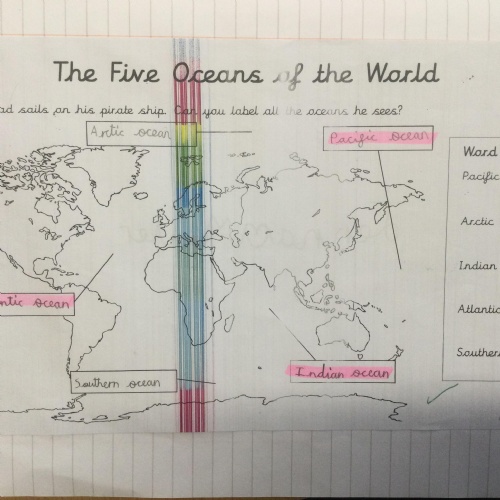 The Five Oceans of the World
ad sails on his pirate ship. Can you label all the oceans he sees?
Arctic ocean
Pacific ocean
Word
Pacific
Arctic
Indian
ntic ocean
Atlantic
Southern
Indian ocean
Southern ocean